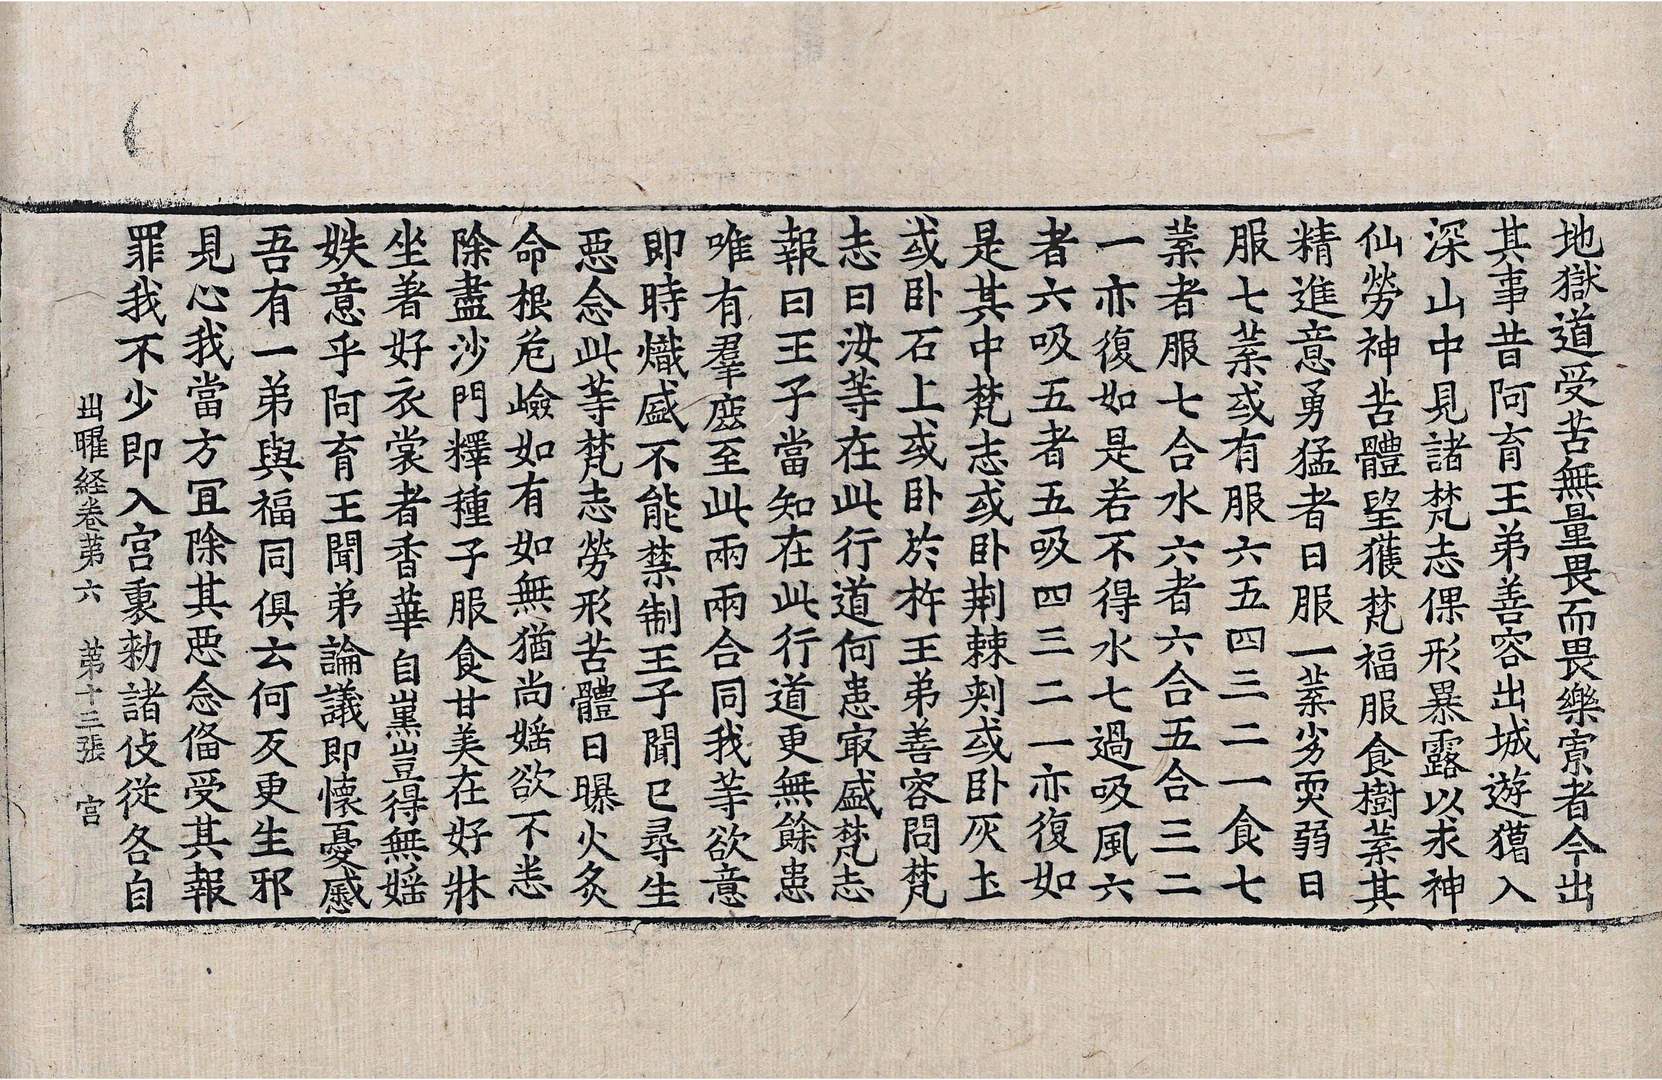 地獄道受苦無量畏而畏樂寮者今出
其事昔阿育王弟善容出城遊獵入
深山中見諸梵志倮形暴露以求神
仙勞神苦體望獲梵福服食樹葉其
精進意勇猛者日服一葉劣耎弱日
服七葉或有服六五四三二一食七
葉者服七合水六者六合五合三二
一亦復如是若不得水七過吸風六
者六吸五者五吸四三二一亦復如
是其中梵志或卧荆棘刾或卧灰土
或卧石上或卧於杵王弟善容問梵
志曰汝等在此行道何患㝡盛梵志
報曰王子當知在此行道更無餘患
唯有羣鹿至此兩兩合同我等欲意
即時熾盛不能禁制王子聞已尋生
惡念此等梵志勞形苦體日曝火炙
命根危嶮如有如無猶尚婬欲不恙
除盡沙門釋種子服食甘美在好牀
坐著好衣裳者香華自熏豈得無婬
妷意乎阿育王聞弟論議即懷憂慼
吾有一弟與福同俱云何反更生邪
見心我當方冝除其惡念俻受其報
罪我不少即入宮裏勑諸伎從各自
出曜経卷苐六　苐十三張　宫